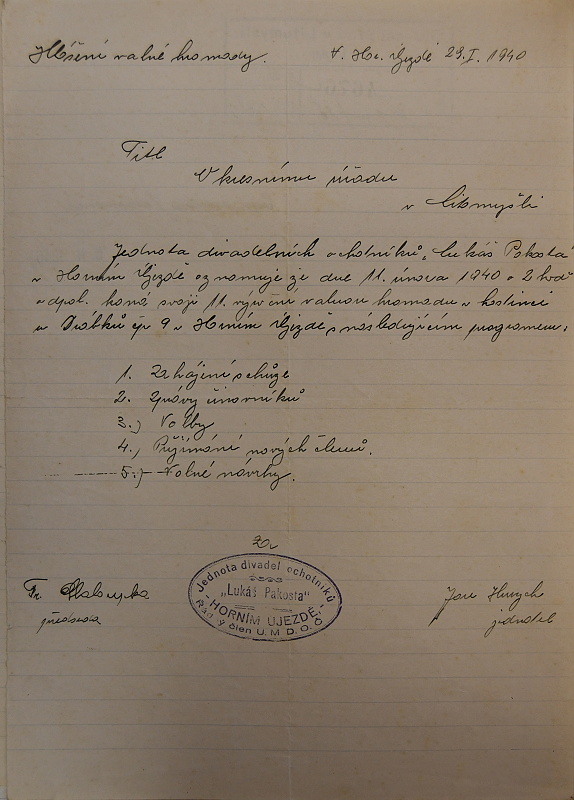 Hlášení valné hromady.
V Hr. Újezdě 29.I. 1940
Titl
Okresnímu úřadu
v Litomyšli
Jednota divadelních ochotníků „Lukáš Pakosta"
v Horním Újezdě oznamuje že dne 11. února 1940 o 2 hod
odpol. koná svoji 11. výroční valnou hromadu v hostinci
u Drábků čp 9 v Horním Újezdě s následujícím programem:
1. Zahájení schůze
2. Zprávy činovníků
3.) Volby
4.) Přijímání nových členů.
5.) Volné návrhy.
Za
Jednota divadel ochotníků
„Lukáš Pakosta"
HORNÍM UJEZDĚ
Řádný člen U.M.D.O.Č.
Fr.
předseda
Jar.
jednatel